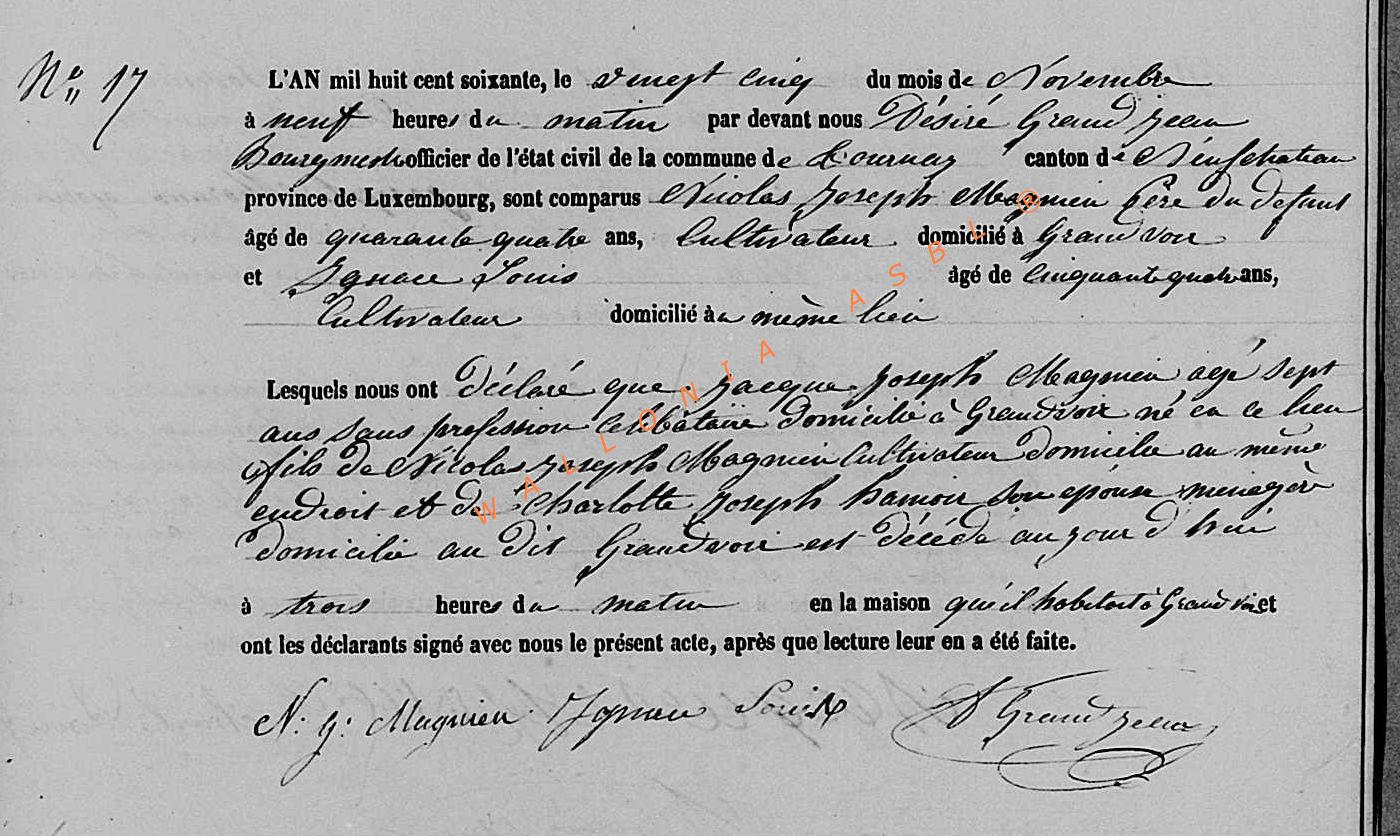 N° 17
L'AN mil huit cent soixante, le vingt cinq du mois de Novembre
à neuf heures du matin par devant nous Désiré Grand jean
Bourgmestre officier de l'état civil de la commune de Tournay canton de Neufchateau
province de Luxembourg, sont comparus Nicolas Joseph Magnien Père du defunt
âgé de quarante quatre ans, Cultivateur domicilié à Grandvoir
et Ignace Louis âgé de cinquante quatre ans,
Cultivateur domicilié au même lieu
Lesquels nous ont déclaré que Jacque Joseph Magnien agé sept
ans sans profession Celibataire domicilié à Grandvoir né en ce lieu
fils de Nicolas Joseph Magnien Cultivateur domicilié au même
endroit et de Charlotte Joseph hamoir son epouse menagère
domicilié au dit Grandvoir est décédé au jour d'hui
à trois heures du matin en la maison qu'il habitait à Grandvoir et
ont les déclarants signé avec nous le présent acte, après que lecture leur en a été faite.
N. j. Magnien Ignace Louis D Grand jean
WALLONIA ASBL ®